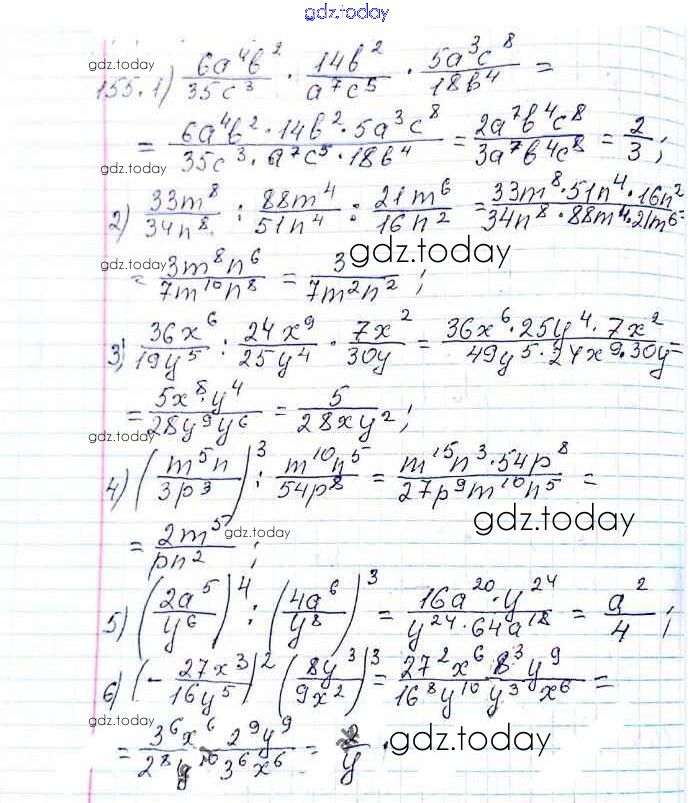 gdz.today
155. 1) 6a⁴b²/35c³ · 14b²/a⁷c⁵ · 5a³c⁸/18b⁴ =
gdz.today
= 6a⁴b² · 14b² · 5a³c⁸/35c³ · a⁷c⁵ · 18b⁴ = 2a⁷b⁴c⁸/3a⁷b⁴c⁸ = 2/3 ;
gdz.today
2) 33m⁸/34n⁸ : 88m⁴/51n⁴ : 21m⁶/16n² = 33m⁸·51n⁴·16n²/34n⁸·88m⁴·21m⁶ =
gdz.today
= 3m⁸n⁶/7m¹⁰n⁸ = 3/7m²n² ;
gdz.today
3) 36x⁶/19y⁵ : 24x⁹/25y⁴ · 7x²/30y = 36x⁶·25y⁴·7x²/49y⁵·24x⁹·30y =
= 5x⁸·y⁴/28y⁹y⁶ = 5/28xy² ;
gdz.today
4) (m⁵n/3p³)³ : m¹⁰n⁵/54p⁸ = m¹⁵n³·54p⁸/27p⁹m¹⁰n⁵ =
gdz.today
= 2m⁵/pn² ;
gdz.today
5) (2a⁵/y⁶)⁴ : (4a⁶/y⁸)³ = 16a²⁰·y²⁴/y²⁴·64a¹⁸ = a²/4 ;
gdz.today
6) (- 27x³/16y⁵)² (8y³/9x²)³ = 27²x⁶ 8³y⁹/16⁸y¹⁰ y³ x⁶ =
gdz.today
= 3⁶x⁶ 2⁹y⁹/2⁸y¹⁰ 3⁶x⁶ = 2/y .
gdz.today